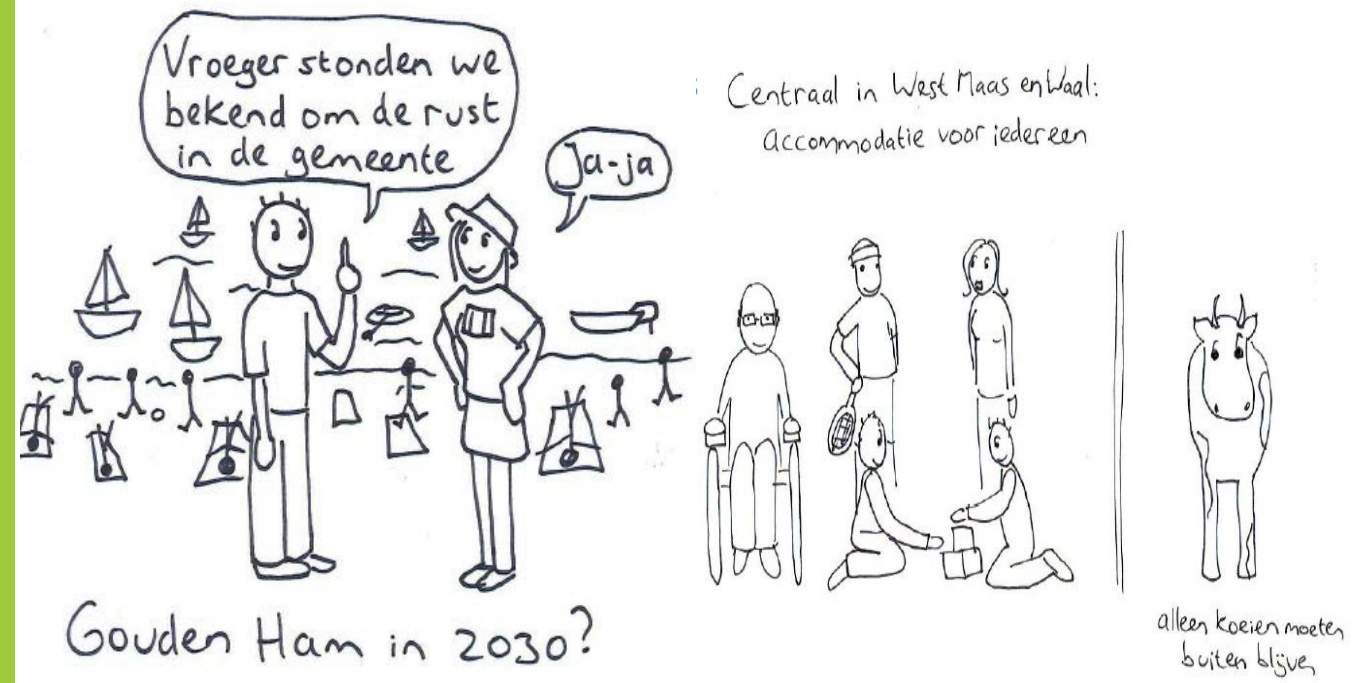 Vroeger stonden we
bekend om de rust
in de gemeente
Ja-ja
Gouden Ham in 2030?
Centraal in West Maas en Waal:
accommodatie voor iedereen
alleen koeien moeten
buiten blijven